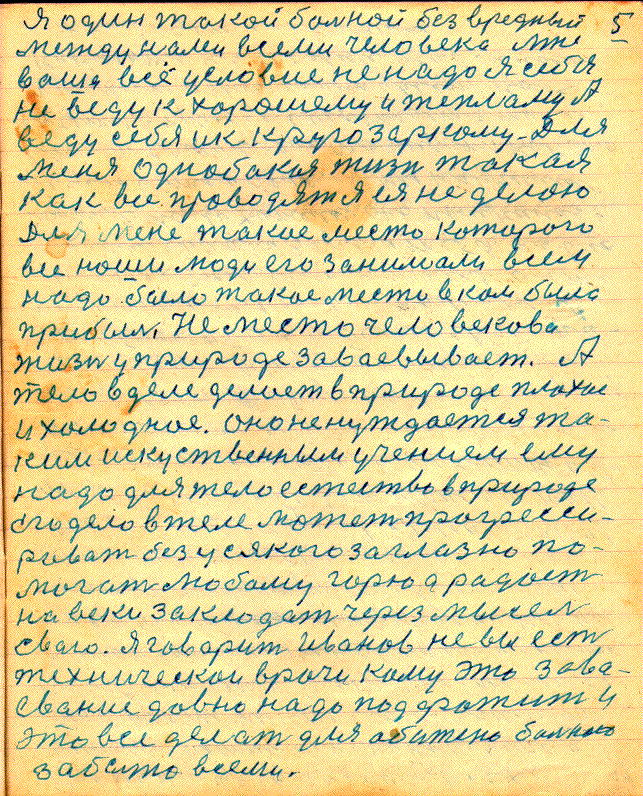 5
Я один такой болной без вредный
между нами всеми человека мне
ваша всё условие не надо Я себя
не веду к хорошему и теплому А
веду себя и к кругозаркому. Для
меня однобакая жизн такая
как все проводят я ея не делаю
Для мене такое место которого
все наши люди его занимали всем
надо было такое место в ком была
прибыл. Не место человекова
жизн у природе заваевывает. А
тело в деле делает в природе плохое
и холодное. оно не нуждается та-
ким искуственным учением ему
надо для тело естество в природе
его дело в теле может прогресси-
роват без усякого заглазно по-
могат любому горю а радост
на веки закладат через мысел
сваго. Я говорит Иванов не вы ест
технической врачи кому это зава-
евание давно надо поддражит и
это все делат для обижено болного
забыто всеми.